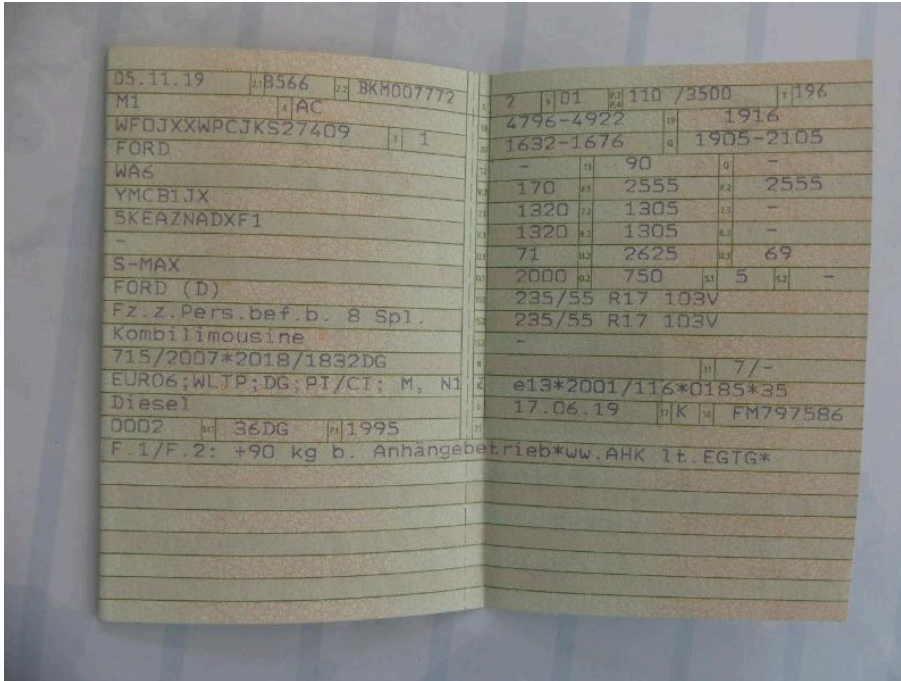 05.11.19 2.1 B566 2.2 BKM007772
M1 4 AC
WF0JXXWPCJKS27409 3 1
FORD
WA6
YMCB1JX
5KEAZNADXF1
-
S-MAX
FORD (D)
Fz.z.Pers.bef.b. 8 Spl.
Kombilimousine
715/2007*2018/1832DG
EURO6;WLTP;DG;PI/CI; M, N1
Diesel
0002 14.1 36DG P.1 1995
F.1/F.2: +90 kg b. Anhängebetrieb*ww.AHK lt.EGTG*
2 9 01 P.2 P.4 110 /3500 T 196
18 4796-4922 19 1916
20 1632-1676 G 1905-2105
12 - 13 90 Q -
V.7 170 F.1 2555 F.2 2555
7.1 1320 7.2 1305 7.3 -
8.1 1320 8.2 1305 8.3 -
U.1 71 U.2 2625 U.3 69
O.1 2000 O.2 750 S.1 5 S.2 -
15.1 235/55 R17 103V
15.2 235/55 R17 103V
15.3 -
R 11 7/-
K e13*2001/116*0185*35
6 17.06.19 17 K 16 FM797586
21